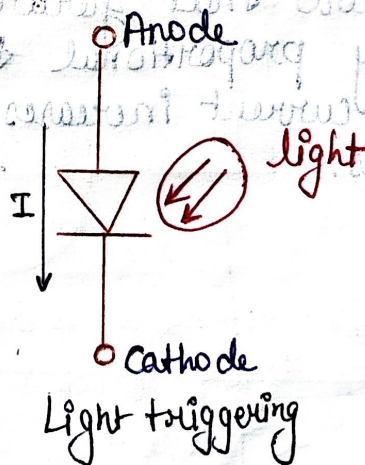 Anode
light
I
Cathode
Light triggering